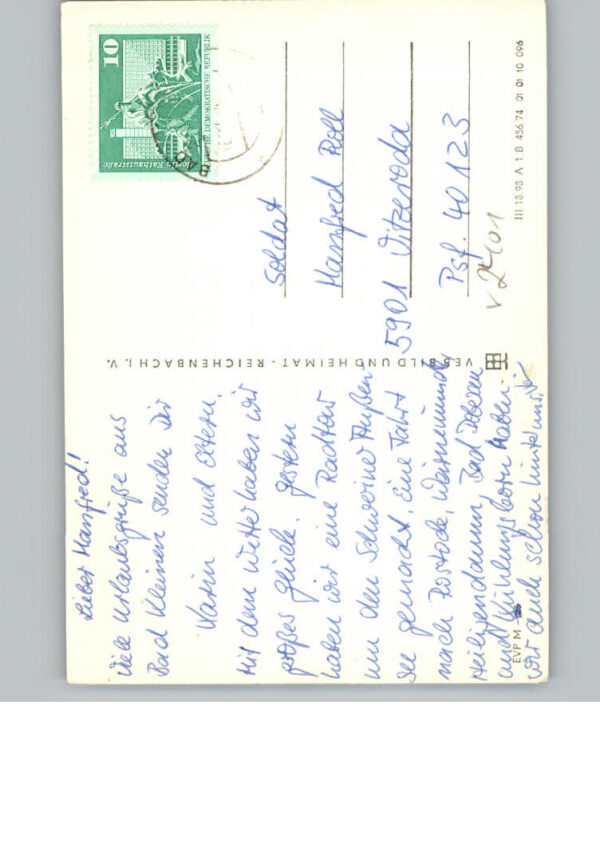 Lieber Manfred!
Viele Urlaubsgrüße aus
Bad Kleinen senden Dir
und Eltern.
Mit dem Wetter haben wir
großes Glück. Gestern
haben wir eine Radtour
um den Schweriner Außen
see gemacht. Eine Fahrt
nach Rostock, Warnemünde,
Heiligendamm, Bad Doberan
und Kühlungsborn haben
wir auch schon hinter uns.
EVP M
VEB BILD UND HEIMAT - REICHENBACH I. V.
10
DEMOKRATISCHE REPUBLIK
Berlin, Rathausstraße
Soldat
Manfred Roll
5901 Vitzeroda
Psf. 40 123
V 2401
III 18 98 A 1 B 456 74 01 01 10 096